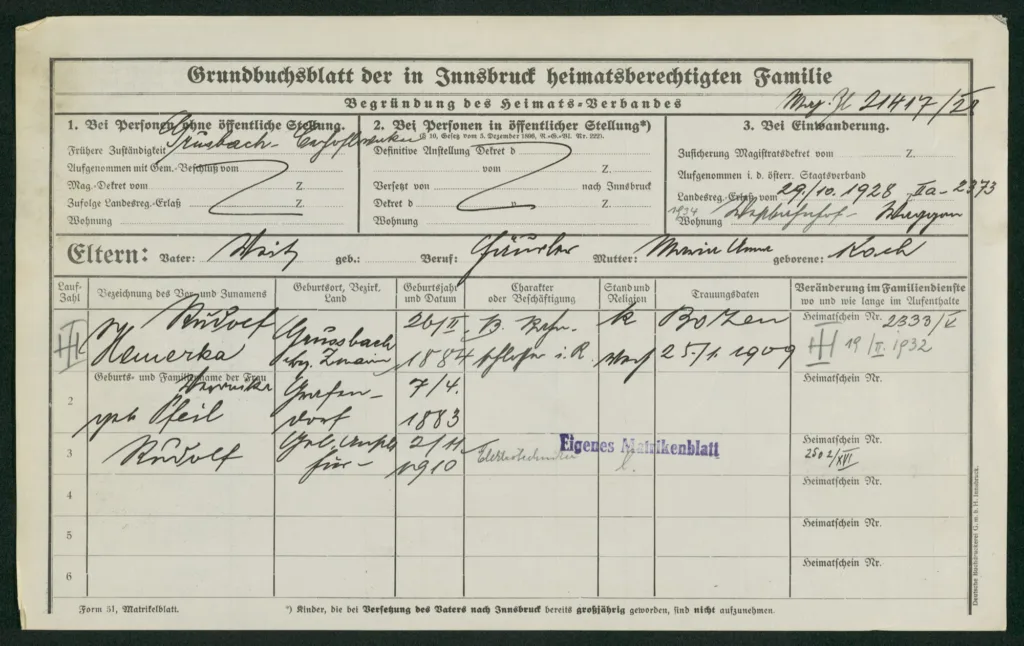 Grundbuchsblatt der in Innsbruck heimatsberechtigten Familie
Begründung des Heimats-Verbandes
Mag. Zl 21417/
1. Bei Personen ohne öffentliche Stellung.
Frühere Zuständigkeit Grusbach-
Aufgenommen mit Gem.-Beschluß vom
Mag.-Dekret vom Z.
Zufolge Landesreg.-Erlaß Z.
Wohnung
2. Bei Personen in öffentlicher Stellung*)
(§ 10, Gesetz vom 5. Dezember 1896, R.-G.-Bl. Nr. 222).
Definitive Anstellung Dekret d
vom Z.
Versetzt von nach Innsbruck
Dekret d v. Z.
Wohnung
3. Bei Einwanderung.
Zusicherung Magistratsdekret vom Z.
Aufgenommen i. d. österr. Staatsverband
Landesreg.-Erlaß vom 29./10. 1928 IIa-2373
1934
Wohnung Westbahnhof- Waggon
Eltern: Vater: Veit geb.: Beruf: Häusler Mutter: Maria Anna geborene: Koch
Lauf-Zahl
Bezeichnung des Vor- und Zunamens
Geburtsort, Bezirk, Land
Geburtsjahr und Datum
Charakter oder Beschäftigung
Stand und Religion
Trauungsdaten
Veränderung im Familiendienste
wo und wie lange im Aufenthalte
Rudolf Grussbach 26/II. B. k Bozen Heimatschein Nr. 2333/V
Hemerka bez. Znaim 1884 schlosser i. R. verh 25./1. 1909 19/II. 1932
Geburts- und Familienname der Frau
2 Veronika Grafen- 7/4. Heimatschein Nr.
geb Pfeil dorf 1883
3 Rudolf 2/11. Elektrotechniker l. Heimatschein Nr.
1910 2502/XVI
Eigenes Matrikenblatt
4 Heimatschein Nr.
5 Heimatschein Nr.
6 Heimatschein Nr.
Form 51, Matrikelblatt.
*) Kinder, die bei Versetzung des Vaters nach Innsbruck bereits großjährig geworden, sind nicht aufzunehmen.
Deutsche Buchdruckerei G. m. b. H. Innsbruck.